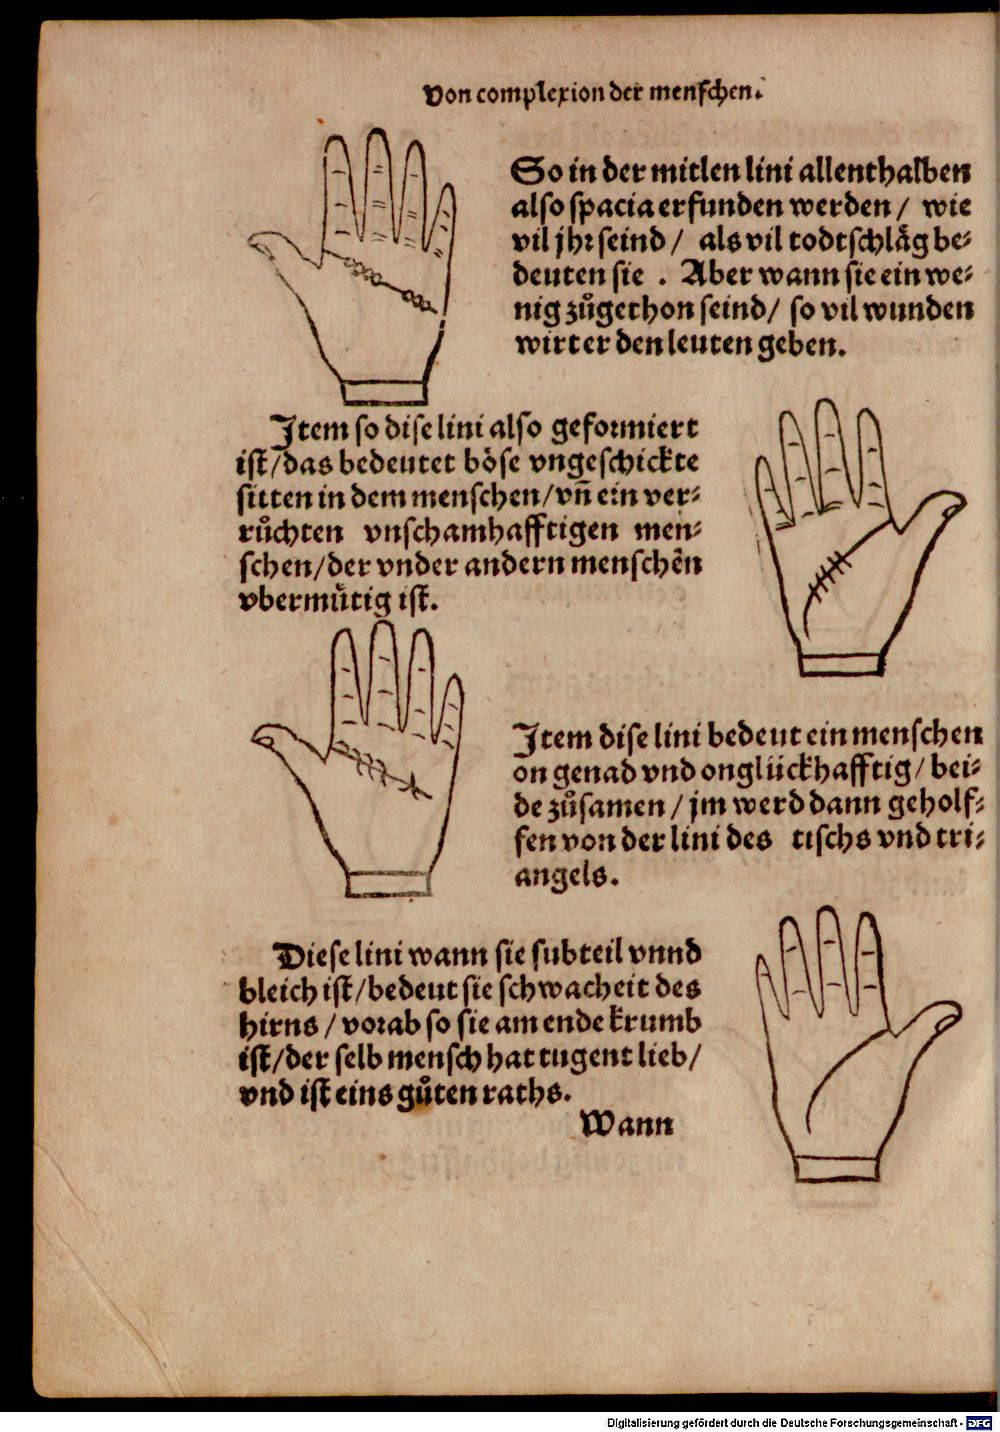 Von complexion der menschen.
So in der mitlen lini allenthalben
also spacia erfunden werden / wie
vil jhr seind / als vil todtschläg be⸗
deuten sie . Aber wann sie ein we⸗
nig zůgethon seind / so vil wunden
wirt er den leuten geben.
Item so dise lini also geformiert
ist / das bedeutet böse vngeschickte
sitten in dem menschen / vñ ein ver⸗
růchten vnschamhafftigen men⸗
schen / der vnder andern menschẽn
vbermütig ist.
Item dise lini bedeut ein menschen
on genad vnd onglückhafftig / bei⸗
de zůsamen / jm werd dann geholf⸗
fen von der lini des tischs vnd tri⸗
angels.
Diese lini wann sie subteil vnnd
bleich ist / bedeut sie schwacheit des
hirns / vorab so sie am ende krumb
ist / der selb mensch hat tugent lieb /
vnd ist eins gůten raths.
Wann
Digitalisierung gefördert durch die Deutsche Forschungsgemeinschaft - DFG